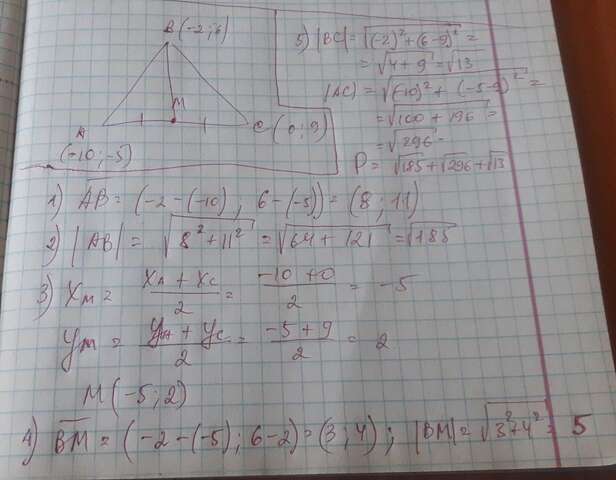 B(-2;6)
M
A
(-10;-5)
C(0;9)
5) |BC| = √(-2)²+(6-9)² =
= √4+9 = √13
|AC| = √(-10)²+(-5-9)² =
= √100+196 =
= √296
P = √185+√296+√13
1) AB = (-2-(-10); 6-(-5)) = (8; 11)
2) |AB| = √8²+11² = √64+121 = √185
3) Xм = Xᴀ + Xс / 2 = -10+0 / 2 = -5
Yм = Yᴀ + Yс / 2 = -5+9 / 2 = 2
M(-5;2)
4) BM = (-2-(-5); 6-2) = (3; 4); |BM| = √3²+4² = 5